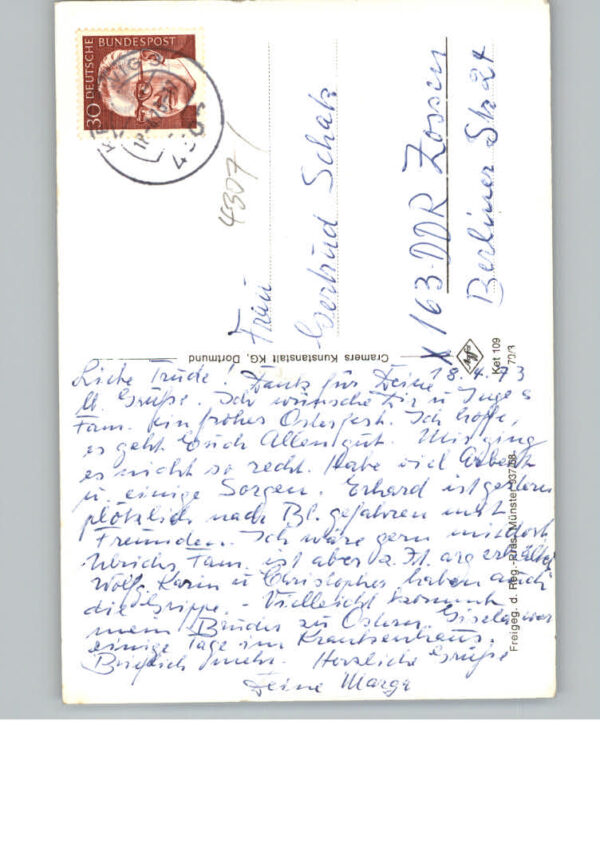 30 DEUTSCHE
BUNDESPOST
4307/
Frau
Gertrud Schatz
X 163 DDR Zossen
Berliner Straße
Cramers Kunstanstalt KG, Dortmund
Ket 109
70/3
Freigeg. d. Reg.-Präs. Münster
18.4.73
Liebe Trude! Dank für Deine
lb. Grüße. Ich wünsche Dir u Inge u
Fam. ein frohes Osterfest. Ich hoffe,
es geht Euch Allen gut. Mir ging
es nicht so recht. Habe viel Arbeit
u. einige Sorgen. Erhard ist gestern
plötzlich nach Bl. gefahren mit
Freunden. Ich wäre gern
Ulrichs Fam. ist aber z. Zt. arg erkältet
Wolfg. Karin u Christopher haben auch
die Grippe. - Vielleicht kommt
mein Bruder zu Ostern. Gisela war
einige Tage im Krankenhaus.
mehr. Herzliche Grüße
Deine Marga